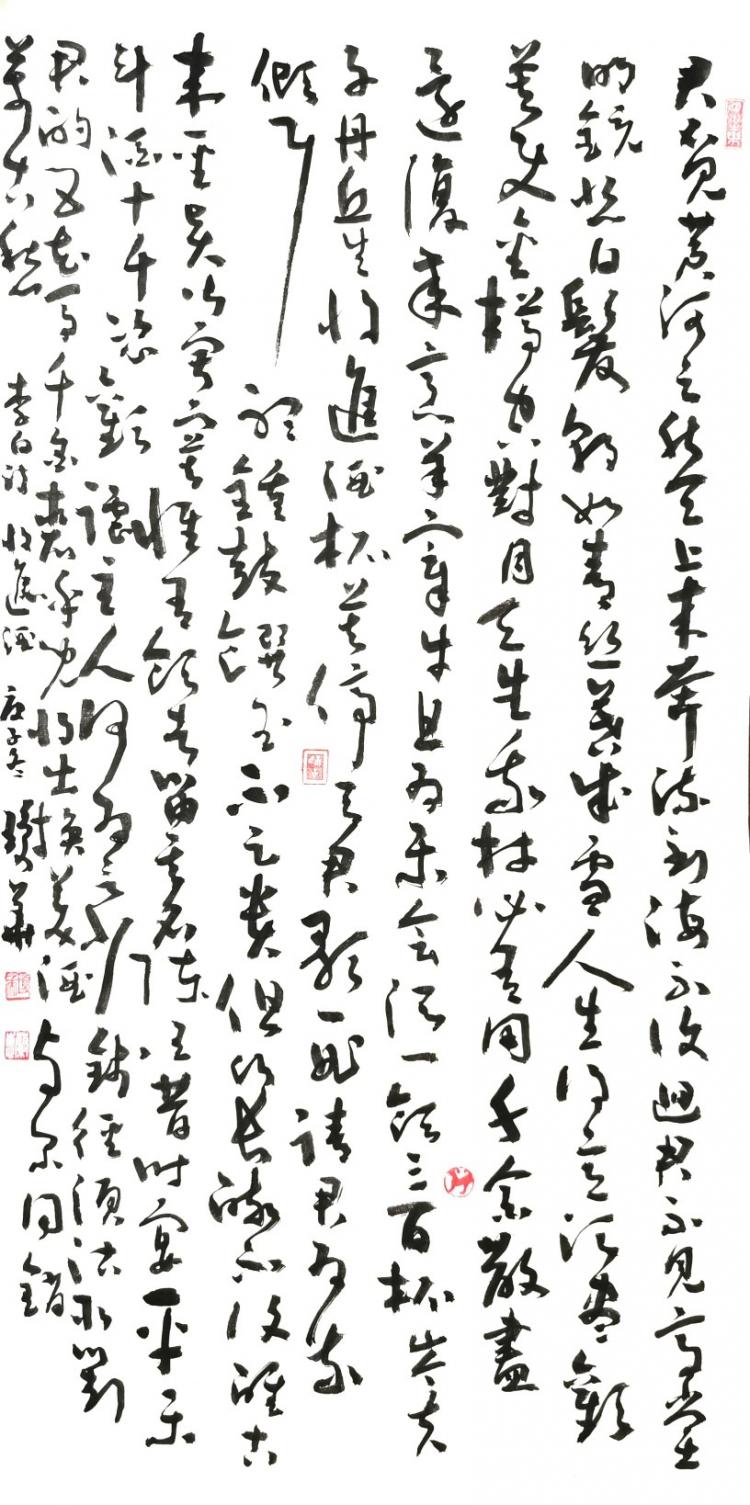 君不見黄河之水天上来奔流到海不復迴君不見高堂
明鏡悲白髮朝如青丝暮成雪人生得意须尽歡
莫使金樽空對月天生我材必有用千金散盡
還復来烹羊宰牛且为乐会须一飲三百杯岑夫
子丹丘生将進酒杯莫停与君歌一曲請君为我
傾耳聽鐘鼓饌玉不足贵但願长醉不復醒古
来聖贤皆寂寞惟有飲者留其名陈王昔时宴平乐
斗酒十千恣歡謔主人何为言少錢径须沽取對
君酌五花马千金裘呼儿将出换美酒与尔同銷
萬古愁 李白诗将進酒 庚子冬